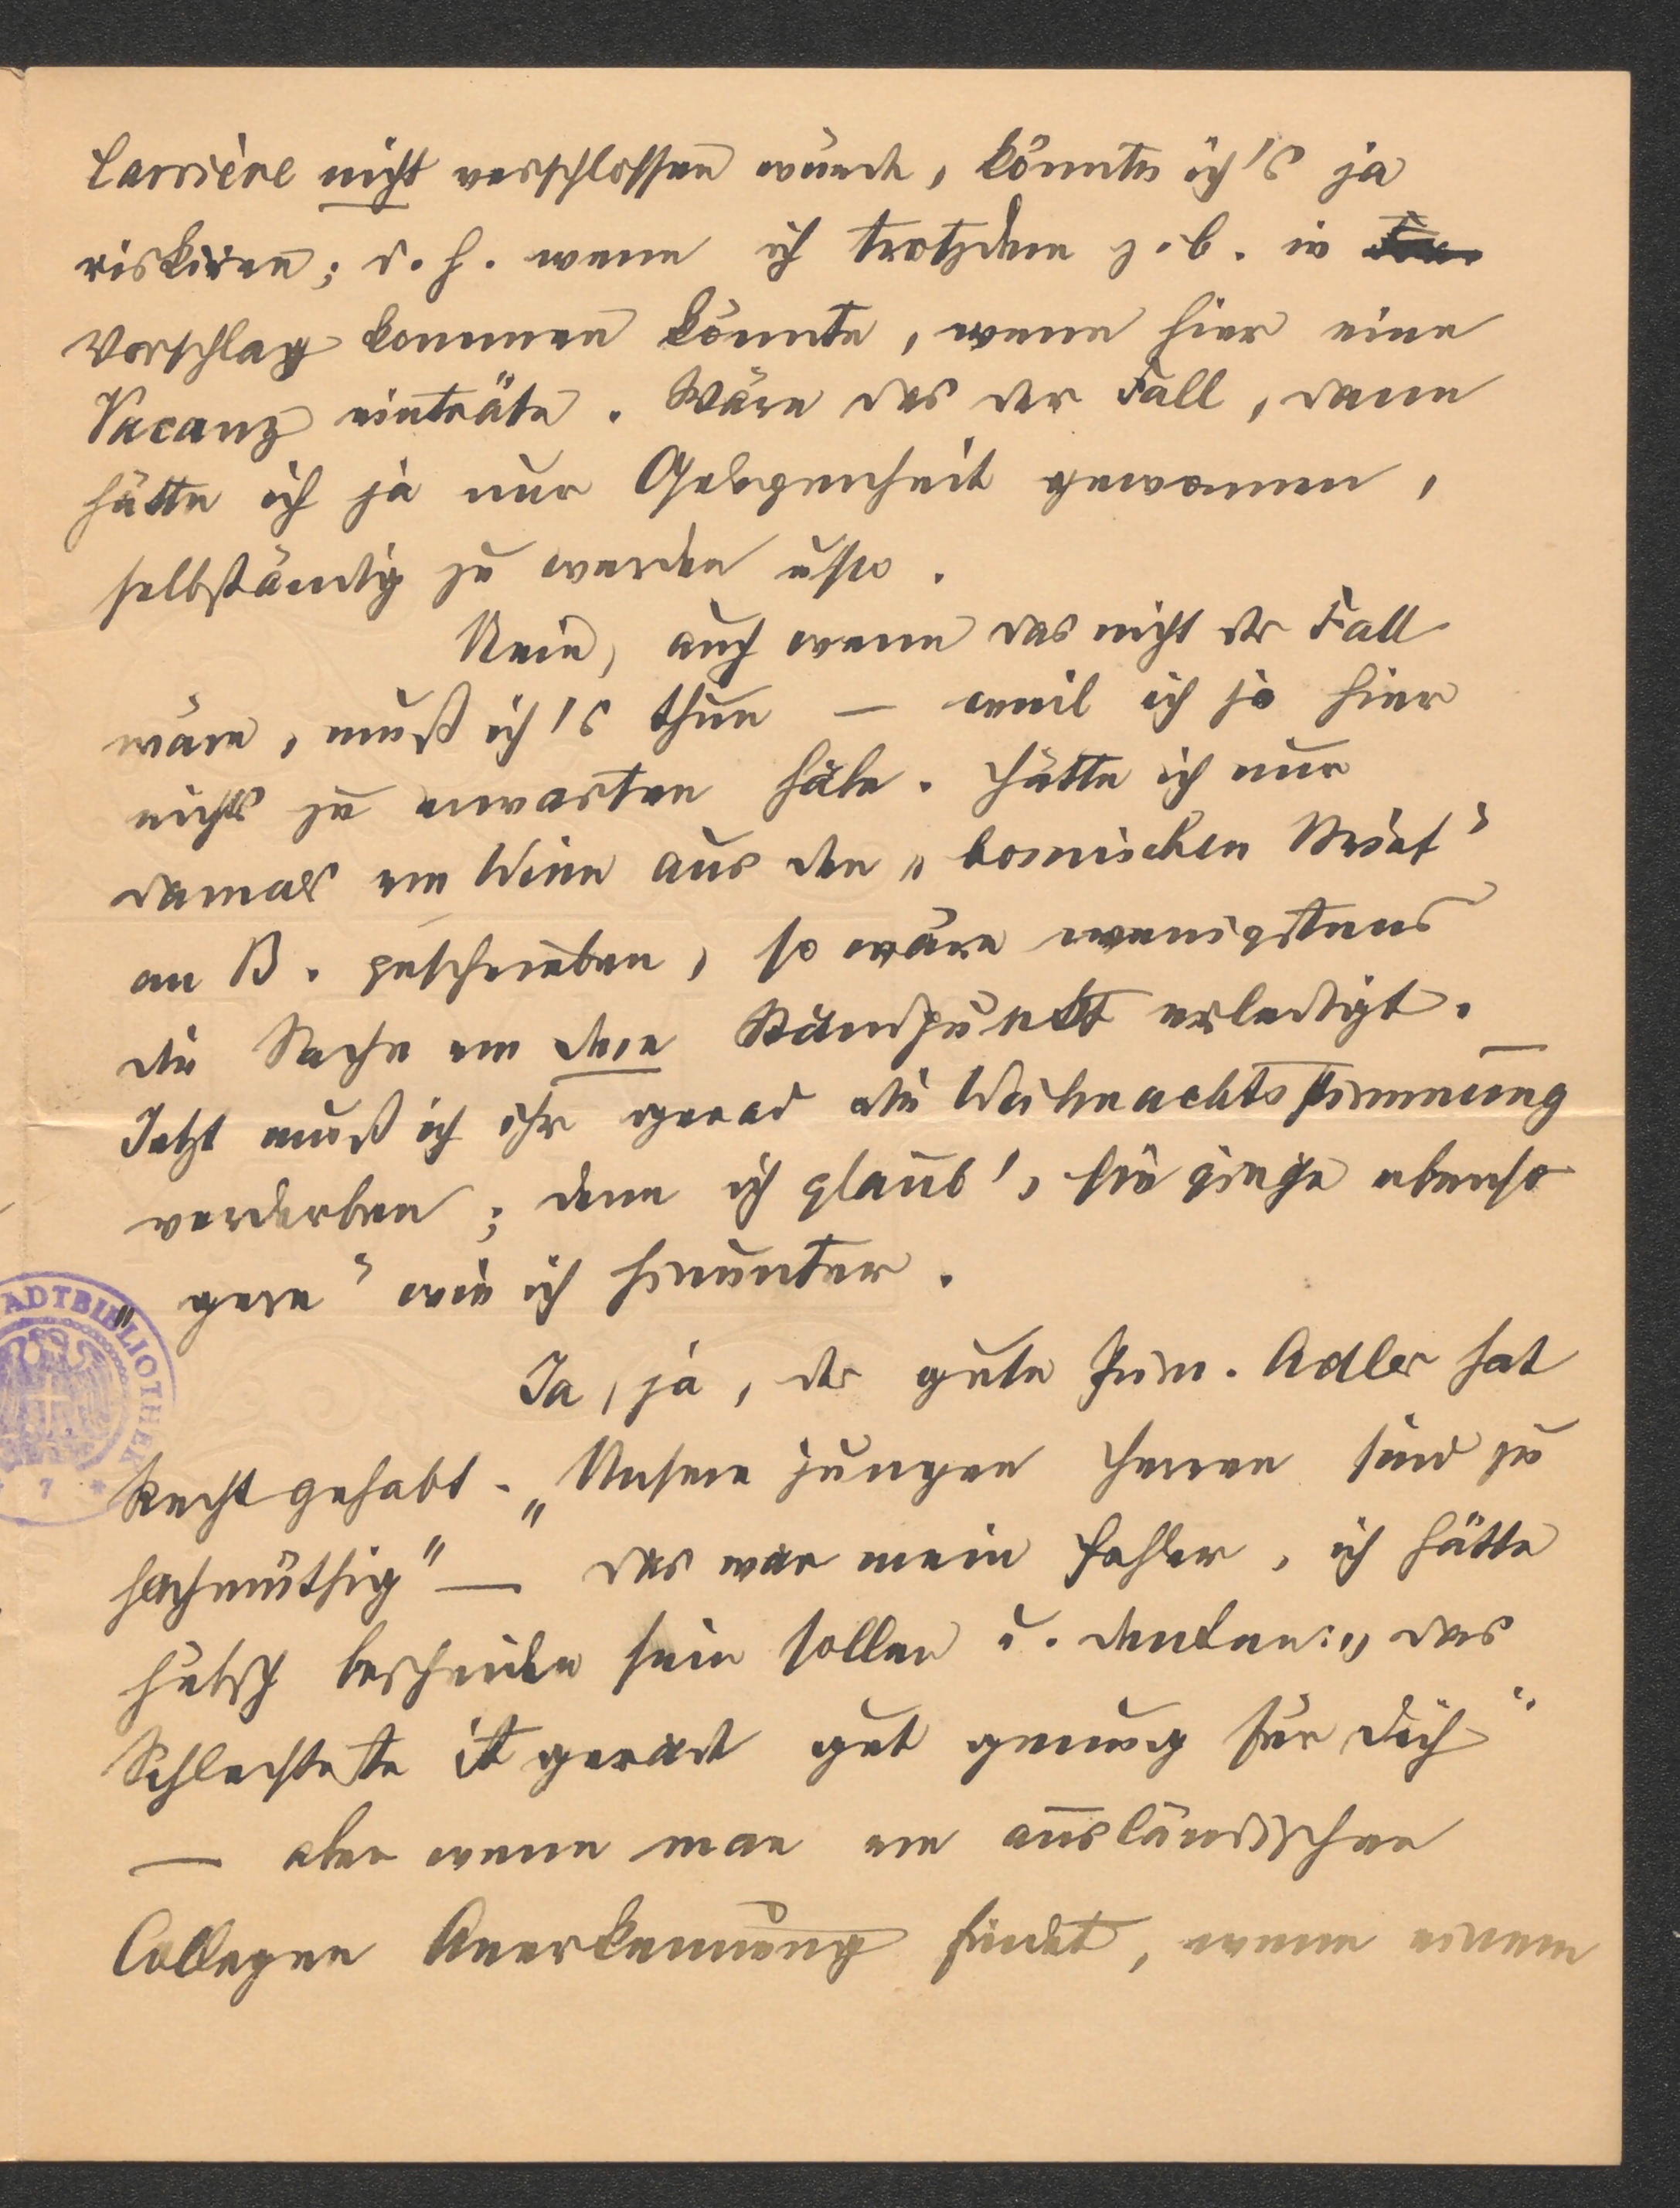 Carrière nicht verschlossen würde, könnte ich's ja
riskiren; d. h. wenn ich trotzdem z. b. in
Vorschlag kommen könnte, wenn hier eine
Vacanz einträte. Wäre das der Fall, dann
hätte ich ja nur Gelegenheit gewonnen,
selbständig zu werden usw.
Nein, auch wenn das nicht der Fall
wäre, muß ich's thun — weil ich ja hier
nichts zu erwarten habe. Hätte ich nur
damals von Wien aus den „
an B. geschrieben, so wäre wenigstens
die Sache von dem Standpunkt erledigt.
Jetzt muß ich ihr gerad die Weihnachtsstimmung
verderben; denn ich glaub', sie ginge ebenso
„gern" wie ich hinunter.
Ja, ja, der gute Prim. Adler hat
Recht gehabt. „Unsere jungen Herren sind zu
hochmüthig" — das war mein Fehler, ich hätte
hübsch bescheiden sein sollen u. denken: „das
Schlechteste ist gerad gut genug für dich"
— aber wenn man von ausländischen
Collegen Anerkennung findet, wenn einem
STADTBIBLIOTHEK